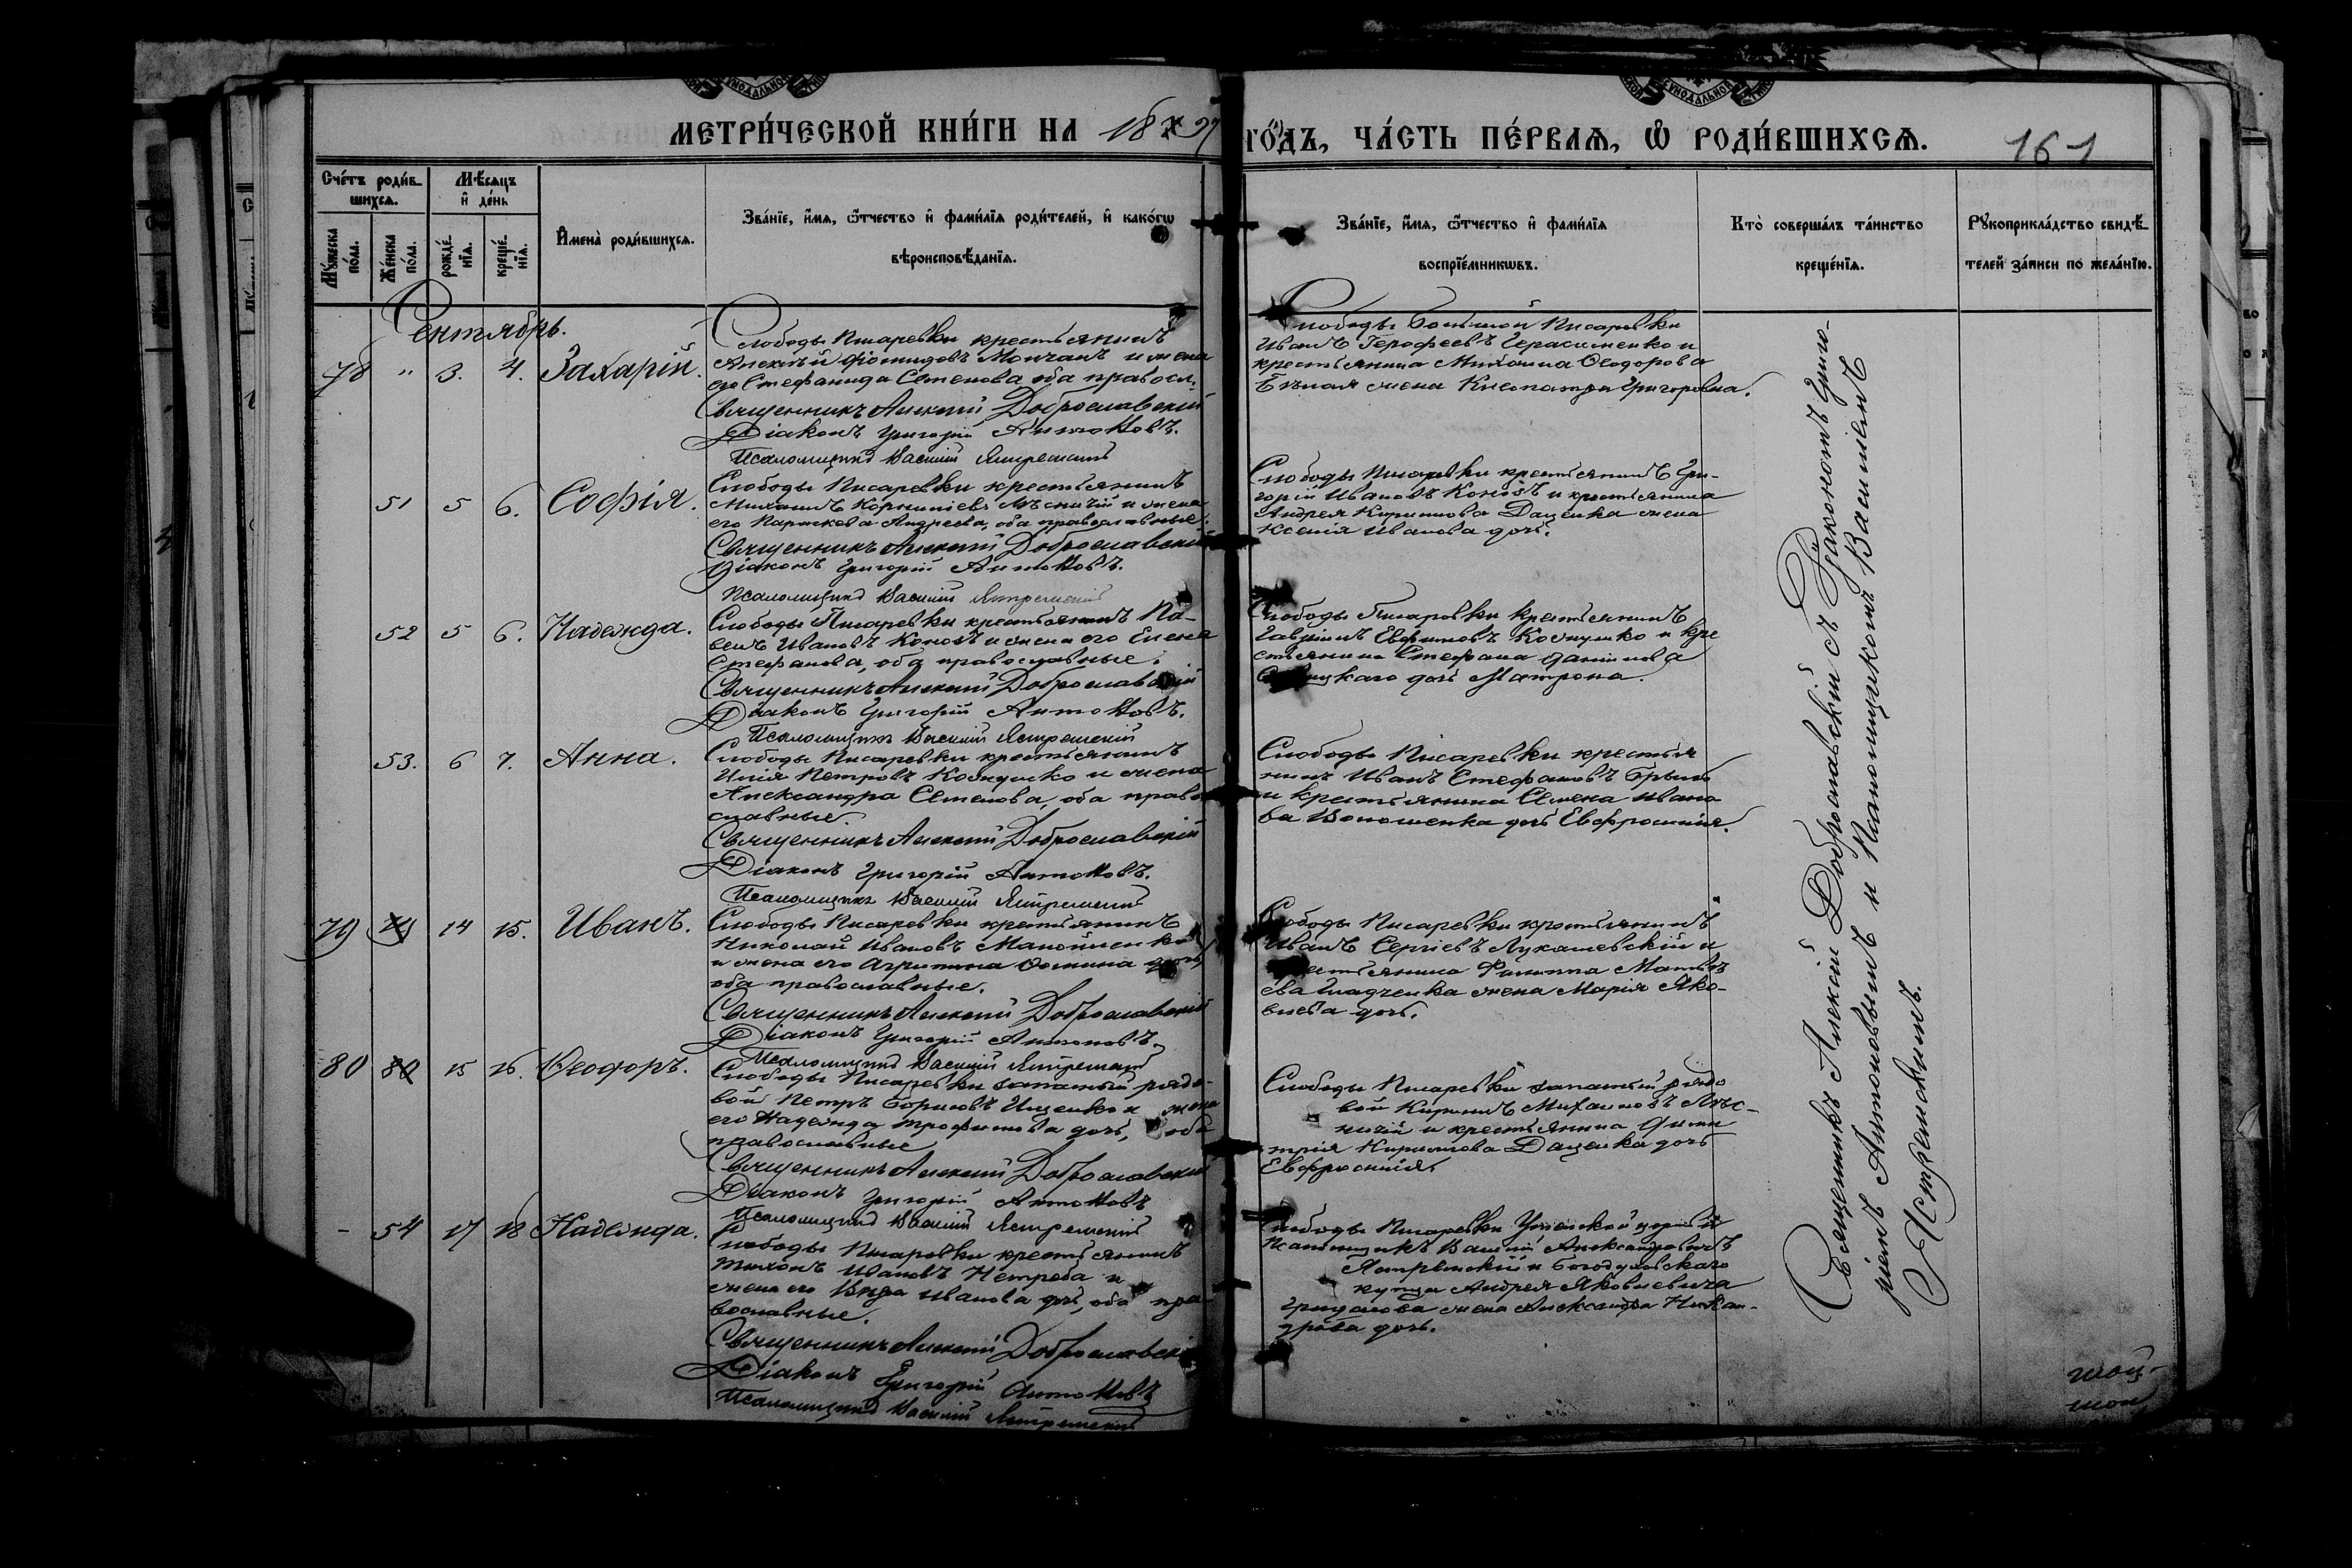 МЕТРИ́ЧЕСКОЙ КНИ́ГИ НА 1897 ГО́ДЪ, ЧА́СТЬ ПЕ́РВАѦ, Ѿ РОДИ́ВШИХСѦ.
161
Сче́тъ роди́в-
шихсѧ.
Мꙋ́жеска по́ла.
Же́нска по́ла.
Мѣ́сѧцъ и҆ де́нь
рожде́-
нїѧ.
креще́-
нїѧ.
И҆мена̀ роди́вшихсѧ.
Зва́нїе, и҆́мѧ, ѻ҆́тчество и҆ фами́лїѧ роди́телей, и҆ како́гѡ
вѣроисповѣ́данїѧ.
Зва́нїе, и҆́мѧ, ѻ҆́тчество и҆ фами́лїѧ
воспрїе́мникѡвъ.
Кто̀ соверша́лъ та́инство
креще́нїѧ.
Рꙋкоприкла́дство свидѣ́-
телей за́писи по жела́нїю.
Сентябрь.
78 " 3. 4. Захарій.
Слободы Писаревки крестьянинъ
Алексѣй Молчанъ и жена
его Стефанида Семенова, оба правосл.
Священникъ Алексій Доброславскій
Діаконъ Григорій Антоновъ.
Псаломщикъ Василій Ястремскій
Слободы Большой Писаревки
Иванъ Герасименко и
крестьянина Михаила Ѳеодорова
жена Клеопатра Григоровна.
51 5 6. Софія.
Слободы Писаревки крестьянинъ
Михаилъ Корниліевъ Лѣсничій и жена
его Параскева Андреева, оба православные.
Священникъ Алексій Доброславскій
Діаконъ Григорій Антоновъ.
Псаломщикъ Василій Ястремскій
Слободы Писаревки крестьянинъ Гри-
горій Ивановъ Коновъ и крестьянина
Андрея Кириллова Даценка жена
Ксенія Иванова дочь.
52 5 6. Надежда.
Слободы Писаревки крестьянинъ Па-
велъ Ивановъ Коновъ и жена его Елена
Стефанова, оба православные.
Священникъ Алексій Доброславскій
Діаконъ Григорій Антоновъ.
Псаломщикъ Василій Ястремскій
Слободы Писаревки крестьянинъ
Гавріилъ Евфимовъ и кре
стьянина Стефана Даниилова
дочь Матрона.
53. 6 7. Анна.
Слободы Писаревки крестьянинъ
Илія Петровъ и жена
Александра Семенова, оба право
славные.
Священникъ Алексій Доброславскій
Діаконъ Григорій Антоновъ.
Псаломщикъ Василій Ястремскій
Слободы Писаревки крестья
нинъ Иванъ Стефановъ
и крестьянина Семена Ивано
ва Волошенка дочь Евфросинія.
79 14 15. Иванъ.
Слободы Писаревки крестьянинъ
Николай Ивановъ Манойленко
и жена его Агрипина Ѳомина дочь,
оба православные.
Священникъ Алексій Доброславскій
Діаконъ Григорій Антоновъ.
Псаломщикъ Василій Ястремскій
Слободы Писаревки крестьянинъ
Иванъ Сергіевъ Лукашевскій и
крестьянина Филиппа Матвѣ
ева Гладченка жена Марія Яко-
влева дочь.
80 80 15 16. Ѳеодоръ.
Слободы Писаревки запасный рядо-
вой Петръ Борисовъ Ищенко и жена
его Надежда Трофимова дочь, оба
православные
Священникъ Алексій Доброславскій
Діаконъ Григорій Антоновъ
Псаломщикъ Василій Ястремскій
Слободы Писаревки запасный рядо
вой Кириллъ Михаиловъ Лѣс-
ничій и крестьянина Дими
трія Кириллова Даценка дочь
Евфросинія.
- 54 17 18 Надежда.
Слободы Писаревки крестьянинъ
Тихонъ Ивановъ Нетреба и
жена его Вѣра Иванова дочь, оба пра
вославные.
Священникъ Алексій Доброславскій
Діаконъ Григорій Антоновъ
Псаломщикъ Василій Ястремскій
Слободы Писаревки Успенской церкви
Псаломщикъ Василій Александровичъ
Ястремскій и Богодуховскаго
купца Андрея Яковлевича
жена Александра Никан-
дрова дочь.
Священникъ Алексій Доброславскій съ Діакономъ Григо-
ріемъ Антоновымъ и Псаломщикомъ Василіемъ
Ястремскимъ.